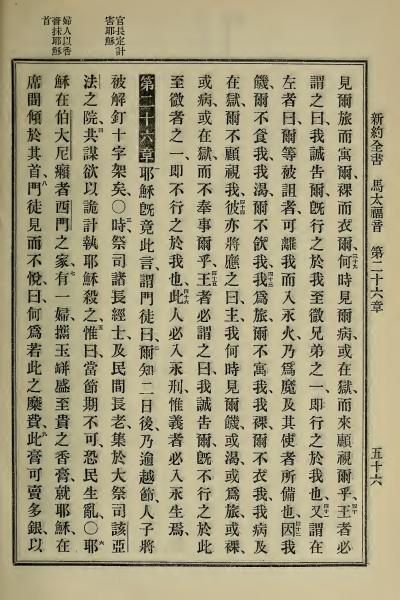 新約全書 馬太福音 第二十六章 五十六
見爾旅而寓爾、裸而衣爾、三十九何時見爾病、或在獄、而來顧視爾乎、四十王者必
謂之曰、我誠告爾、旣行之於我至微兄弟之一、卽行之於我也、四十一又謂在
左者曰、爾等被詛者、可離我而入永火、乃爲魔及其使者所備也、四十二因我
饑、爾不食我、我渴、爾不飲我、四十三我爲旅、爾不寓我、我裸、爾不衣我、我病及
在獄、爾不顧視我、四十四彼亦將應之曰、主、我何時見爾饑、或渴、或爲旅、或裸、
或病、或在獄、而不奉事爾乎、四十五王者必謂之曰、我誠告爾、旣不行之於此
至微者之一、卽不行之於我也、四十六此人必入永刑、惟義者必入永生焉、
第二十六章 一耶穌旣竟此言、謂門徒曰、二爾知二日後、乃逾越節、人子將
被解釘十字架矣、〇三時祭司諸長、經士、及民間長老、集於大祭司該亞
法之院、四共謀欲以詭計執耶穌殺之、五惟曰、當節期不可、恐民生亂、〇六耶
穌在伯大尼、癩者西門之家、七有一婦攜玉缾、盛至貴之香膏、就耶穌、在
席間傾於其首、八門徒見而不悅、曰、何爲若此之糜費、九此膏可賣多銀、以
官長定計
害耶穌
婦人以香
膏抹耶穌
首